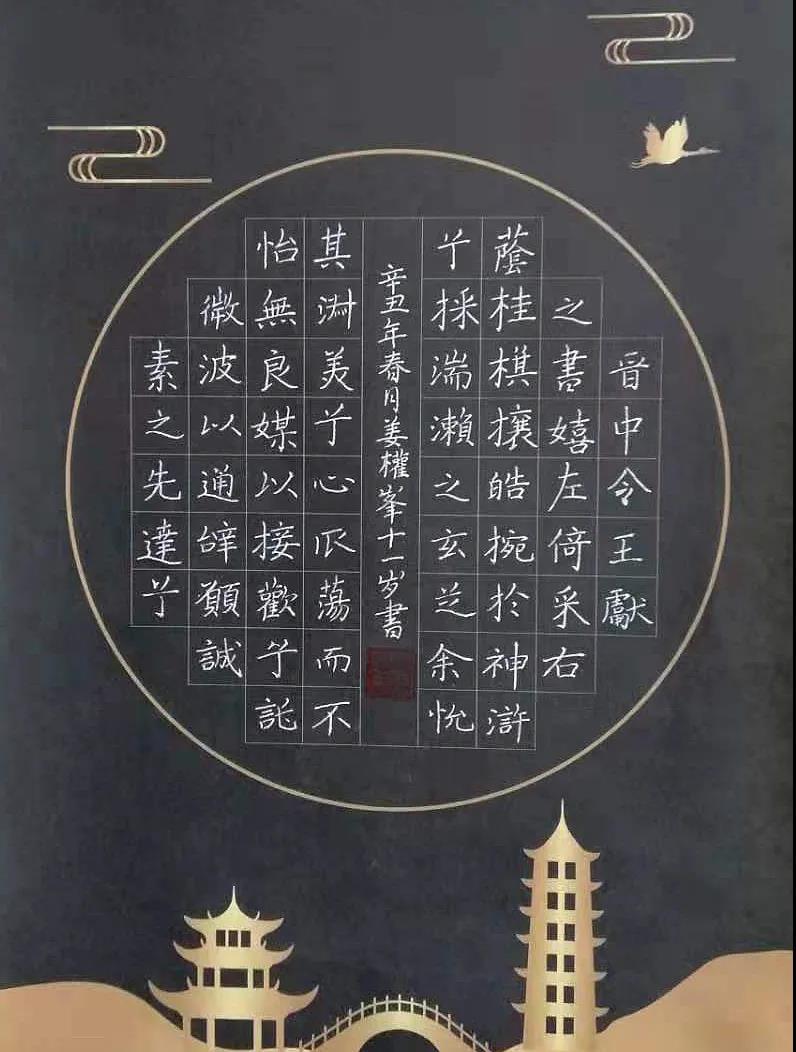 晋中令王獻
之書嬉左倚采右
蔭桂棋攘皓捥於神滸
兮採湍瀨之玄芝余悅
辛丑年春月姜權峯十一岁書
其淑美兮心振蕩而不
怡無良媒以接歡兮託
微波以通辭願誠
素之先達兮